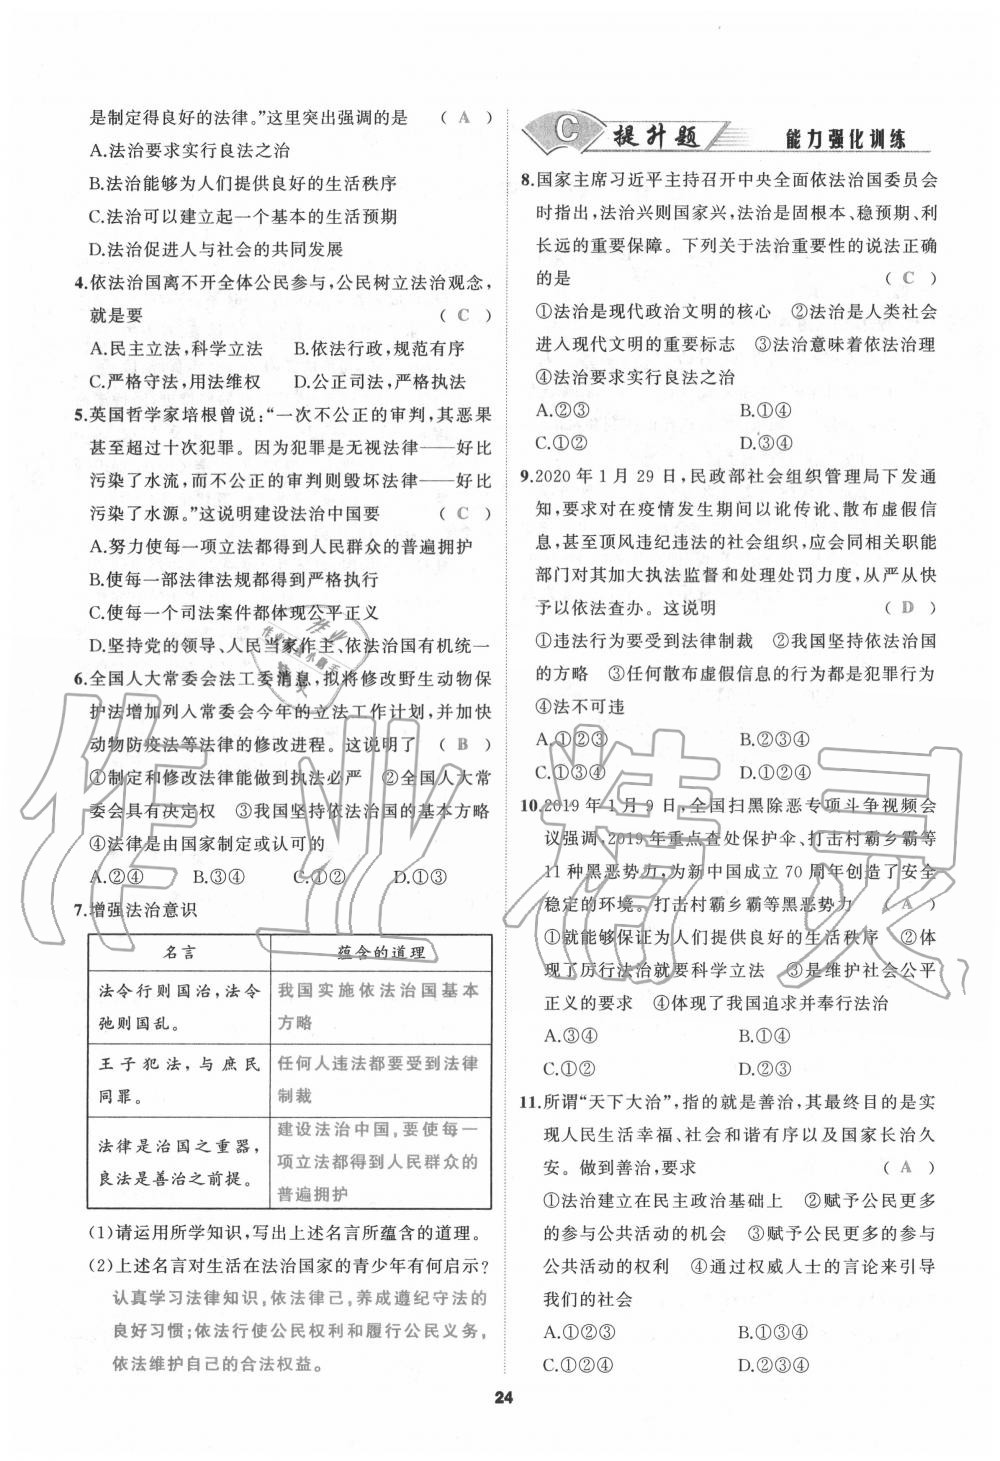 是制定得良好的法律。”这里突出强调的是 （ A ）
A.法治要求实行良法之治
B.法治能够为人们提供良好的生活秩序
C.法治可以建立起一个基本的生活预期
D.法治促进人与社会的共同发展
4.依法治国离不开全体公民参与,公民树立法治观念,
就是要 （ C ）
A.民主立法,科学立法 B.依法行政,规范有序
C.严格守法,用法维权 D.公正司法,严格执法
5.英国哲学家培根曾说:“一次不公正的审判,其恶果
甚至超过十次犯罪。因为犯罪是无视法律——好比
污染了水流,而不公正的审判则毁坏法律——好比
污染了水源。”这说明建设法治中国要 （ C ）
A.努力使每一项立法都得到人民群众的普遍拥护
B.使每一部法律法规都得到严格执行
C.使每一个司法案件都体现公平正义
D.坚持党的领导、人民当家作主、依法治国有机统一
6.全国人大常委会法工委消息,拟将修改野生动物保
护法增加列入常委会今年的立法工作计划,并加快
动物防疫法等法律的修改进程。这说明了 （ B ）
①制定和修改法律能做到执法必严 ②全国人大常
委会具有决定权 ③我国坚持依法治国的基本方略
④法律是由国家制定或认可的
A.②④ B.③④ C.①② D.①③
7.增强法治意识
名言 蕴含的道理
法令行则国治,法令 我国实施依法治国基本
弛则国乱。 方略
王子犯法,与庶民 任何人违法都要受到法律
同罪。 制裁
法律是治国之重器, 建设法治中国,要使每一
良法是善治之前提。 项立法都得到人民群众的
普遍拥护
(1)请运用所学知识,写出上述名言所蕴含的道理。
(2)上述名言对生活在法治国家的青少年有何启示?
认真学习法律知识,依法律己,养成遵纪守法的
良好习惯;依法行使公民权利和履行公民义务,
依法维护自己的合法权益。
C 提升题 能力强化训练
8.国家主席习近平主持召开中央全面依法治国委员会
时指出,法治兴则国家兴,法治是固根本、稳预期、利
长远的重要保障。下列关于法治重要性的说法正确
的是 （ C ）
①法治是现代政治文明的核心 ②法治是人类社会
进入现代文明的重要标志 ③法治意味着依法治理
④法治要求实行良法之治
A.②③ B.①④
C.①② D.③④
9.2020年1月29日,民政部社会组织管理局下发通
知,要求对在疫情发生期间以讹传讹、散布虚假信
息,甚至顶风违纪违法的社会组织,应会同相关职能
部门对其加大执法监督和处理处罚力度,从严从快
予以依法查办。这说明 （ D ）
①违法行为要受到法律制裁 ②我国坚持依法治国
的方略 ③任何散布虚假信息的行为都是犯罪行为
④法不可违
A.①②③ B.②③④
C.①③④ D.①②④
10.2019年1月9日,全国扫黑除恶专项斗争视频会
议强调,2019年重点查处保护伞、打击村霸乡霸等
11种黑恶势力,为新中国成立70周年创造了安全
稳定的环境。打击村霸乡霸等黑恶势力 （ A ）
①就能够保证为人们提供良好的生活秩序 ②体
现了厉行法治就要科学立法 ③是维护社会公平
正义的要求 ④体现了我国追求并奉行法治
A.③④ B.①④
C.①② D.②③
11.所谓“天下大治”,指的就是善治,其最终目的是实
现人民生活幸福、社会和谐有序以及国家长治久
安。做到善治,要求 （ A ）
①法治建立在民主政治基础上 ②赋予公民更多
的参与公共活动的机会 ③赋予公民更多的参与
公共活动的权利 ④通过权威人士的言论来引导
我们的社会
A.①②③ B.①③④
C.①②④ D.②③④
24
作业精灵